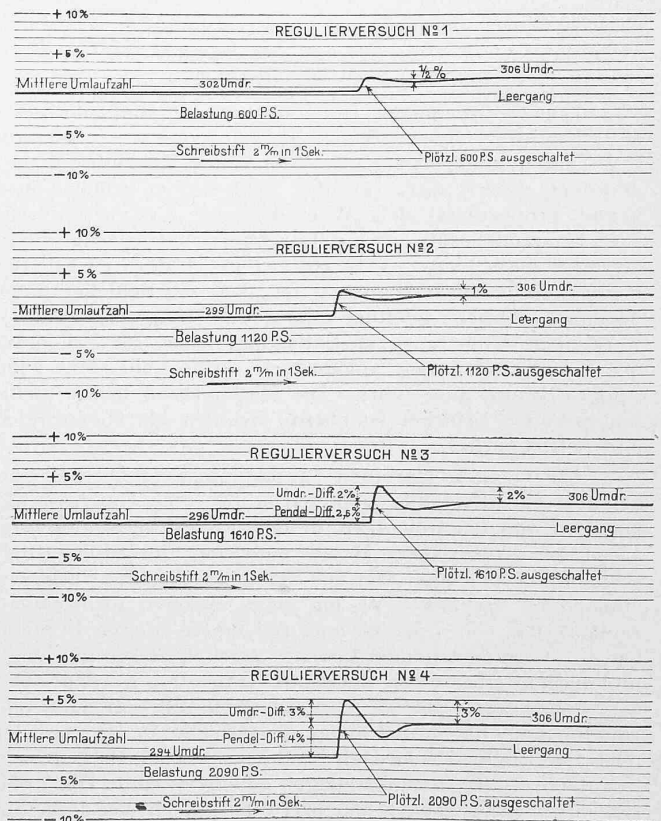 + 10%
REGULIERVERSUCH Nº 1
+ 5%
½ %
306 Umdr.
Mittlere Umlaufzahl
302 Umdr.
Leergang
Belastung 600 P.S.
- 5%
Schreibstift 2 m/m in 1 Sek.
Plötzl. 600 P.S. ausgeschaltet
- 10%
+ 10%
REGULIERVERSUCH Nº 2
+ 5%
1%
306 Umdr.
Mittlere Umlaufzahl
299 Umdr.
Leergang
Belastung 1120 P.S.
- 5%
Schreibstift 2 m/m in 1 Sek.
Plötzl. 1120 P.S. ausgeschaltet
- 10%
+ 10%
REGULIERVERSUCH Nº 3
+ 5%
Umdr.-Diff. 2%
2%
306 Umdr.
Pendel-Diff. 2,5%
Mittlere Umlaufzahl
296 Umdr.
Leergang
Belastung 1610 P.S.
- 5%
Schreibstift 2 m/m in 1 Sek.
Plötzl. 1610 P.S. ausgeschaltet
- 10%
+ 10%
REGULIERVERSUCH Nº 4
+ 5%
Umdr.-Diff. 3%
3%
306 Umdr.
Mittlere Umlaufzahl
Pendel-Diff. 4%
294 Umdr.
Leergang
Belastung 2090 P.S.
- 5%
Schreibstift 2 m/m in Sek.
Plötzl. 2090 P.S. ausgeschaltet
- 10%